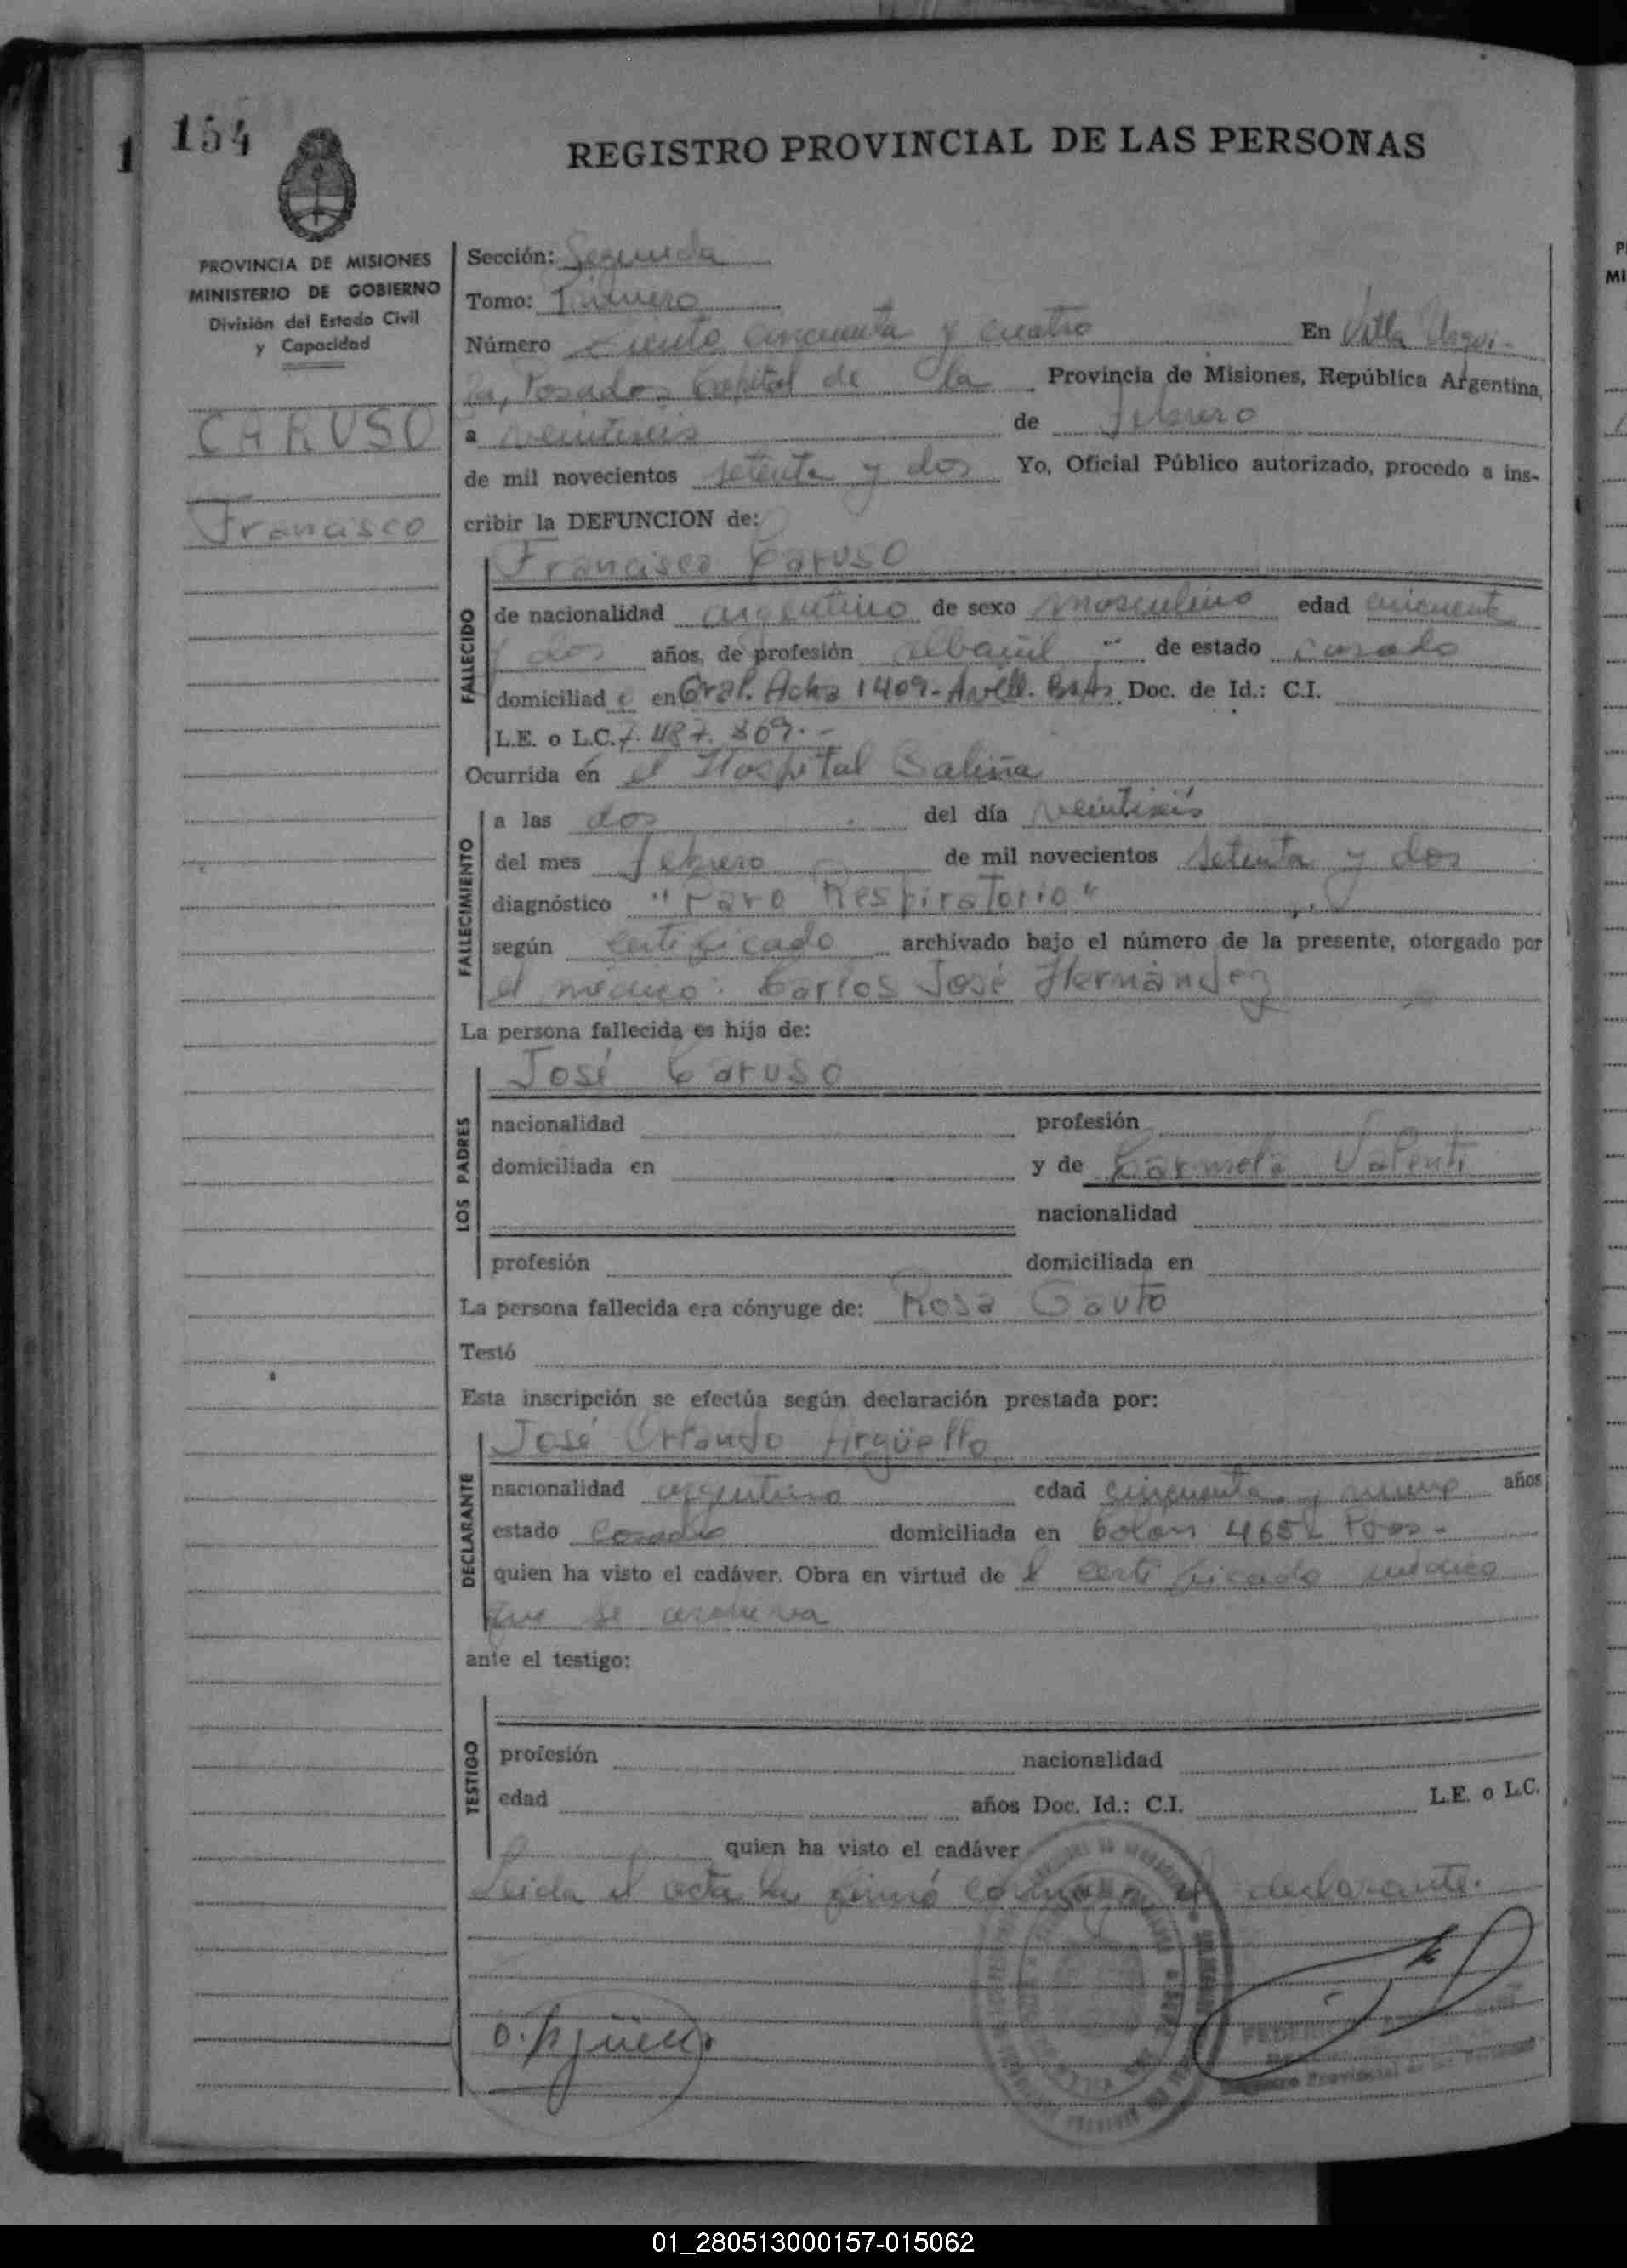 154
1
REGISTRO PROVINCIAL DE LAS PERSONAS
PROVINCIA DE MISIONES
MINISTERIO DE GOBIERNO
División del Estado Civil
y Capacidad
CARUSO
Francisco
Sección: Segunda
Tomo: Primero
Número Ciento cincuenta y cuatro En Villa Urqui-
za, Posadas Capital de la Provincia de Misiones, República Argentina,
a veintiseis de febrero
de mil novecientos setenta y dos Yo, Oficial Público autorizado, procedo a ins-
cribir la DEFUNCION de:
Francisco Caruso
FALLECIDO
de nacionalidad argentino de sexo masculino edad cincuenta
y dos años, de profesión albañil de estado casado
domiciliad o en Gral. Acha 1409- Avell. BsAs Doc. de Id.: C.I.
L.E. o L.C. 7.487.809.-
Ocurrida en el Hospital Baliña
FALLECIMIENTO
a las dos del día veintiseis
del mes febrero de mil novecientos setenta y dos
diagnóstico "Paro Respiratorio"
según certificado archivado bajo el número de la presente, otorgado por
el médico: Carlos José Hernández
La persona fallecida es hija de:
LOS PADRES
José Caruso
nacionalidad profesión
domiciliada en y de Carmela Valenti
nacionalidad
profesión domiciliada en
La persona fallecida era cónyuge de: Rosa Gauto
Testó
Esta inscripción se efectúa según declaración prestada por:
DECLARANTE
José Orlando Argüello
nacionalidad argentino edad cincuenta y nueve años
estado casado domiciliada en Colon 4652 Pdas-
quien ha visto el cadáver. Obra en virtud de l certificado médico
que se archiva
ante el testigo:
TESTIGO
profesión nacionalidad
edad años Doc. Id.: C.I. L.E. o L.C.
quien ha visto el cadáver
Leida el acta la firmó conmigo el declarante.
O. Argüello
Registro Provincial de las Personas
P
MI
01_280513000157-015062